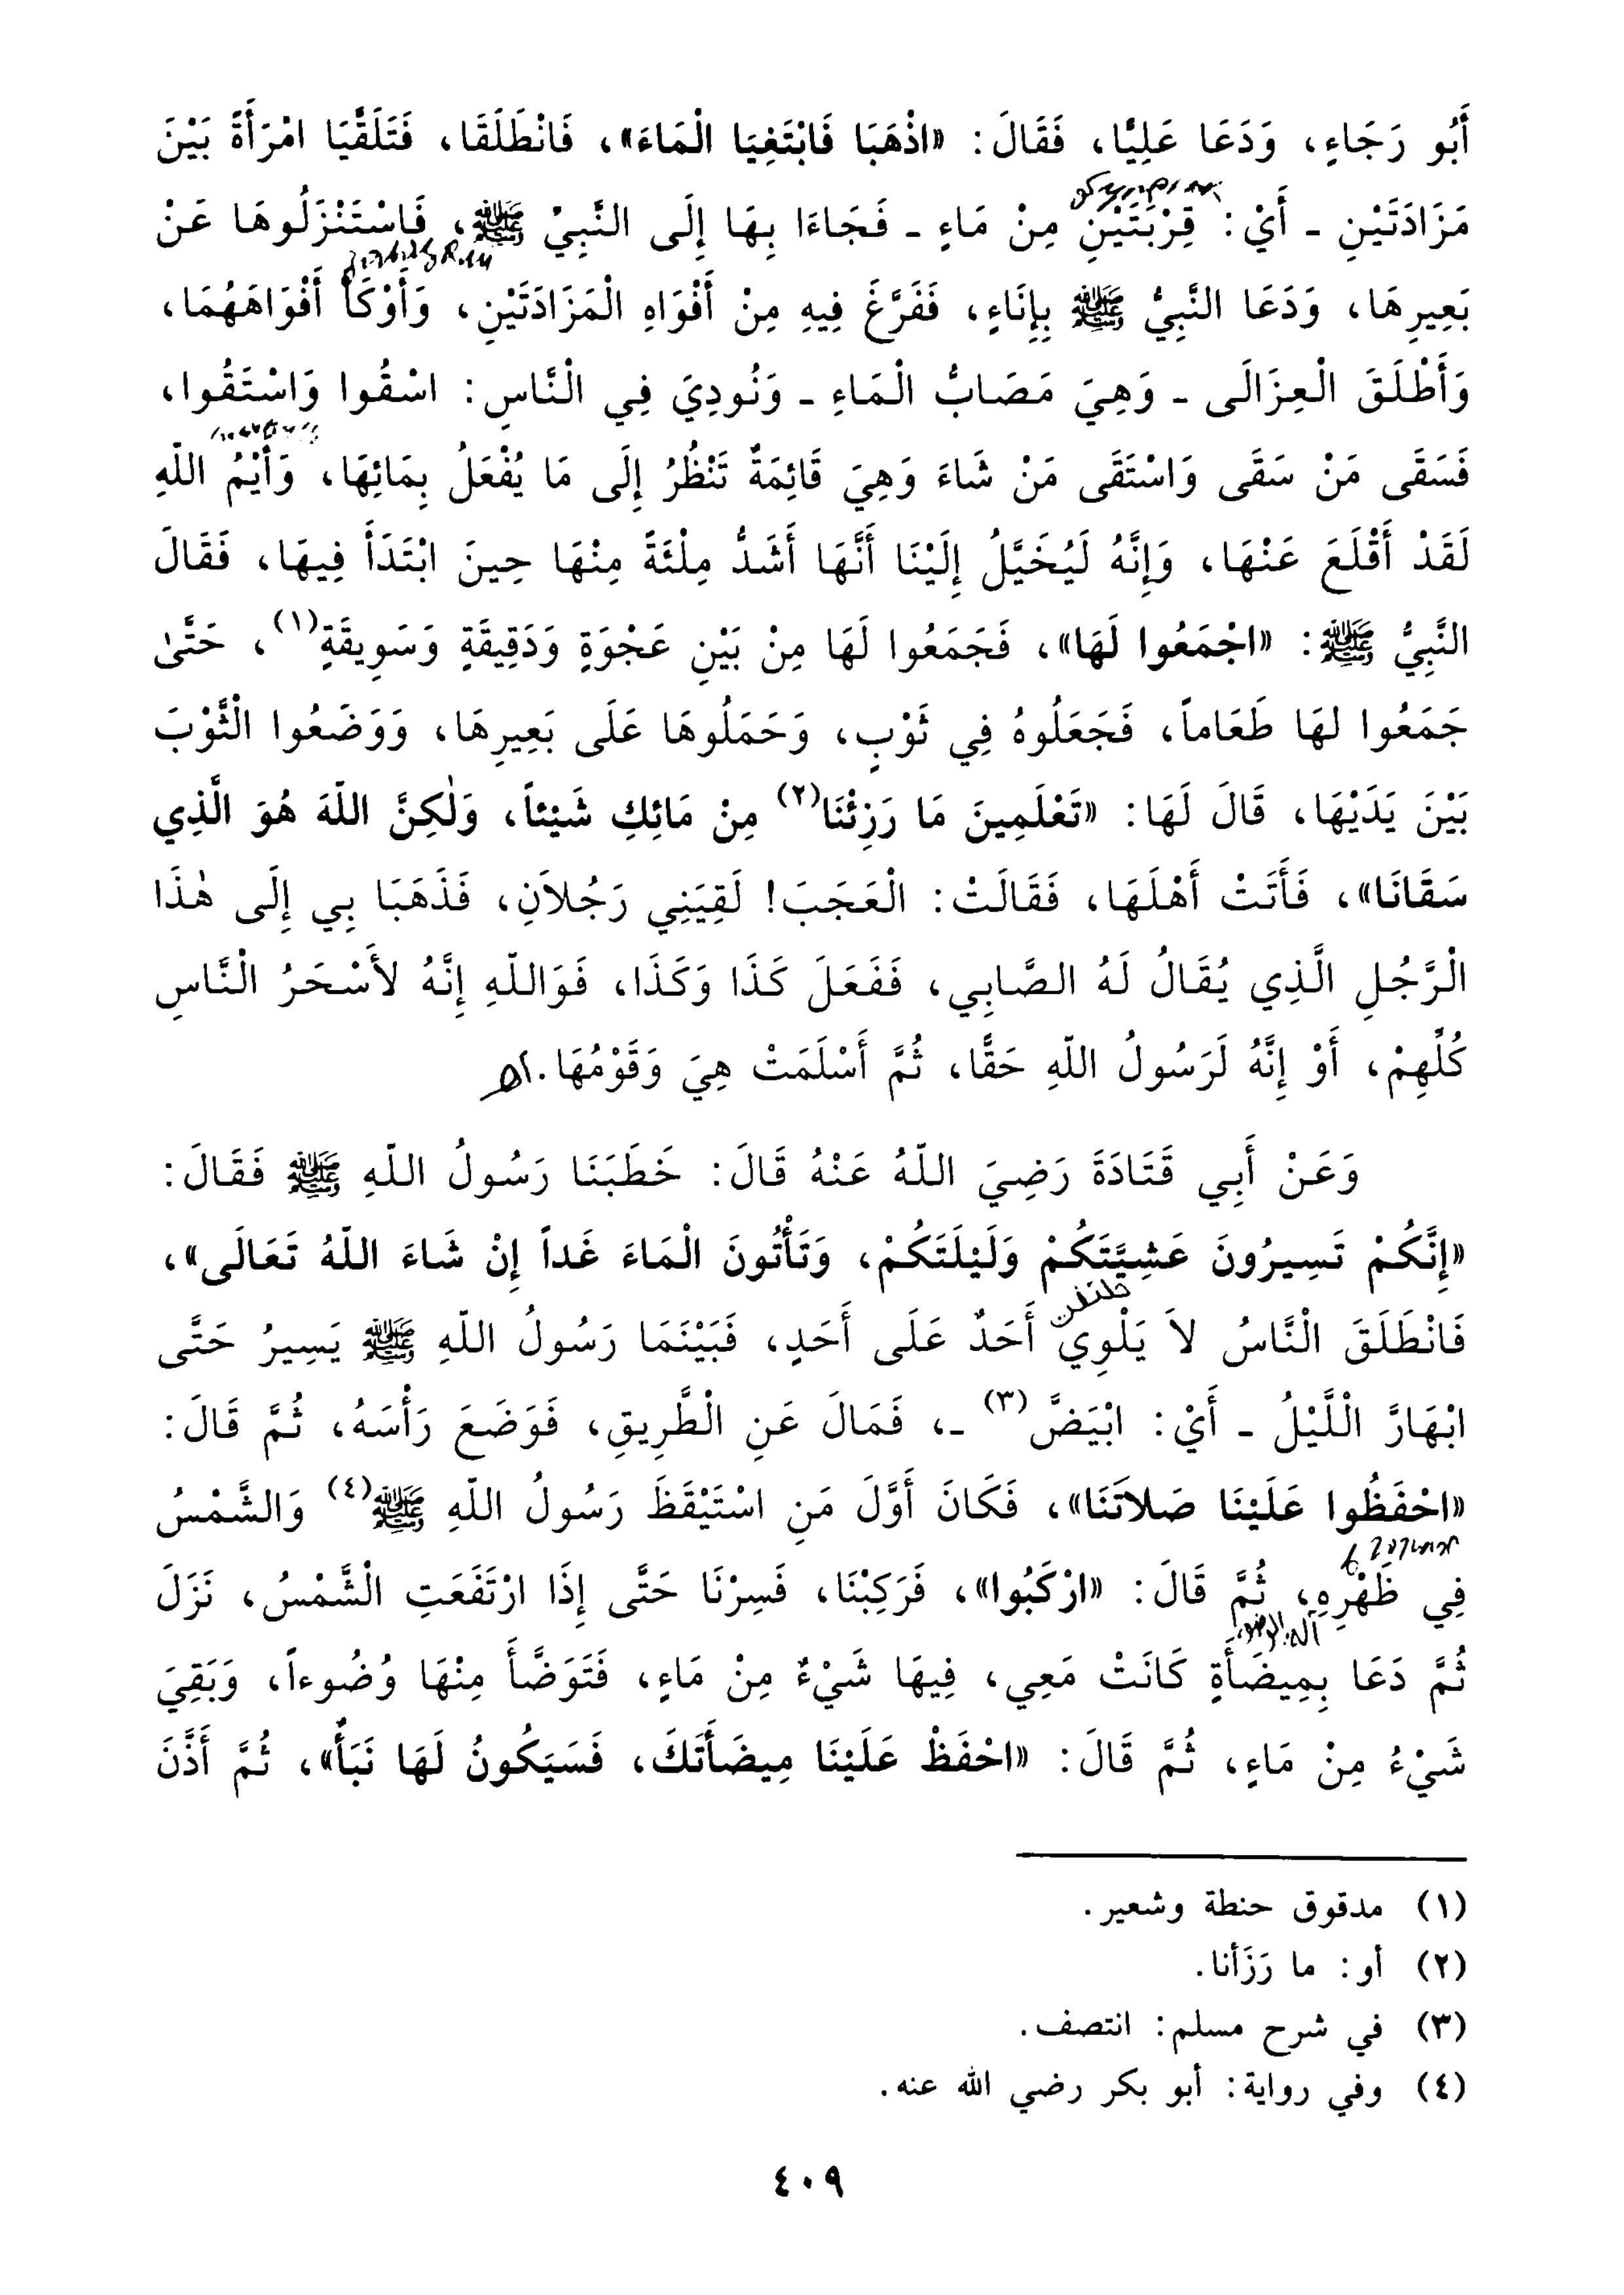 أَبُو رَجَاءٍ، وَدَعَا عَلِيًّا، فَقَالَ: «اذْهَبَا فَابْتَغِيَا الْمَاءَ»، فَانْطَلَقَا، فَتَلَقَّيَا امْرَأَةً بَيْنَ
مَزَادَتَيْنِ ـ أَيْ: قِرْبَتَيْنِ مِنْ مَاءٍ ـ فَجَاءَا بِهَا إِلَى النَّبِيِّ ﷺ، فَاسْتَنْزَلُوهَا عَنْ
بَعِيرِهَا، وَدَعَا النَّبِيُّ ﷺ بِإِنَاءٍ، فَفَرَّغَ فِيهِ مِنْ أَفْوَاهِ الْمَزَادَتَيْنِ، وَأَوْكَأَ أَفْوَاهَهُمَا،
وَأَطْلَقَ الْعِزَالَى ـ وَهِيَ مَصَابُّ الْمَاءِ ـ وَنُودِيَ فِي النَّاسِ: اسْقُوا وَاسْتَقُوا،
فَسَقَى مَنْ سَقَى وَاسْتَقَى مَنْ شَاءَ وَهِيَ قَائِمَةٌ تَنْظُرُ إِلَى مَا يُفْعَلُ بِمَائِهَا، وَأَيْمُ اللّهِ
لَقَدْ أَقْلَعَ عَنْهَا، وَإِنَّهُ لَيُخَيَّلُ إِلَيْنَا أَنَّهَا أَشَدُّ مِلْئَةً مِنْهَا حِينَ ابْتَدَأَ فِيهَا، فَقَالَ
النَّبِيُّ ﷺ: «اجْمَعُوا لَهَا»، فَجَمَعُوا لَهَا مِنْ بَيْنِ عَجْوَةٍ وَدَقِيقَةٍ وَسَوِيقَةٍ(١)، حَتَّىٰ
جَمَعُوا لهَا طَعَاماً، فَجَعَلُوهُ فِي ثَوْبٍ، وَحَمَلُوهَا عَلَى بَعِيرِهَا، وَوَضَعُوا الْثَّوْبَ
بَيْنَ يَدَيْهَا، قَالَ لَهَا: «تَعْلَمِينَ مَا رَزِئْنَا(٢) مِنْ مَائِكِ شَيْئاً، وَلٰكِنَّ اللّهَ هُوَ الَّذِي
سَقَانَا»، فَأَتَتْ أَهْلَهَا، فَقَالَتْ: الْعَجَبَ! لَقِيَنِي رَجُلاَنِ، فَذَهَبَا بِي إِلَى هٰذَا
الْرَّجُلِ الَّذِي يُقَالُ لَهُ الصَّابِي، فَفَعَلَ كَذَا وَكَذَا، فَوَاللّهِ إِنَّهُ لأَسْحَرُ الْنَّاسِ
كُلِّهِمْ، أَوْ إِنَّهُ لَرَسُولُ اللّهِ حَقًّا، ثُمَّ أَسْلَمَتْ هِيَ وَقَوْمُهَا. اه
وَعَنْ أَبِي قَتَادَةَ رَضِيَ اللّهُ عَنْهُ قَالَ: خَطَبَنَا رَسُولُ اللّهِ ﷺ فَقَالَ:
«إِنَّكُمْ تَسِيرُونَ عَشِيَّتَكُمْ وَلَيْلَتَكُمْ، وَتَأْتُونَ الْمَاءَ غَداً إِنْ شَاءَ اللّهُ تَعَالَى»،
فَانْطَلَقَ الْنَّاسُ لاَ يَلْوِي أَحَدٌ عَلَى أَحَدٍ، فَبَيْنَمَا رَسُولُ اللّهِ ﷺ يَسِيرُ حَتَّى
ابْهَارَّ الْلَّيْلُ ـ أَيْ: ابْيَضَّ(٣) ـ، فَمَالَ عَنِ الْطَّرِيقِ، فَوَضَعَ رَأْسَهُ، ثُمَّ قَالَ:
«احْفَظُوا عَلَيْنَا صَلاَتَنَا»، فَكَانَ أَوَّلَ مَنِ اسْتَيْقَظَ رَسُولُ اللّهِ ﷺ(٤) وَالشَّمْسُ
فِي ظَهْرِهِ، ثُمَّ قَالَ: «ارْكَبُوا»، فَرَكِبْنَا، فَسِرْنَا حَتَّى إِذَا ارْتَفَعَتِ الْشَّمْسُ، نَزَلَ
آلة الوضوء
ثُمَّ دَعَا بِمِيضَأَةٍ كَانَتْ مَعِي، فِيهَا شَيْءٌ مِنْ مَاءٍ، فَتَوَضَّأَ مِنْهَا وُضُوءاً، وَبَقِيَ
شَيْءُ مِنْ مَاءٍ، ثُمَّ قَالَ: «احْفَظْ عَلَيْنَا مِيضَأَتَكَ، فَسَيَكُونُ لَهَا نَبَأٌ»، ثُمَّ أَذَّنَ
(١) مدقوق حنطة وشعير.
(٢) أو: ما رَزَأنا.
(٣) في شرح مسلم: انتصف.
(٤) وفي رواية: أبو بكر رضي الله عنه.
٤٠٩